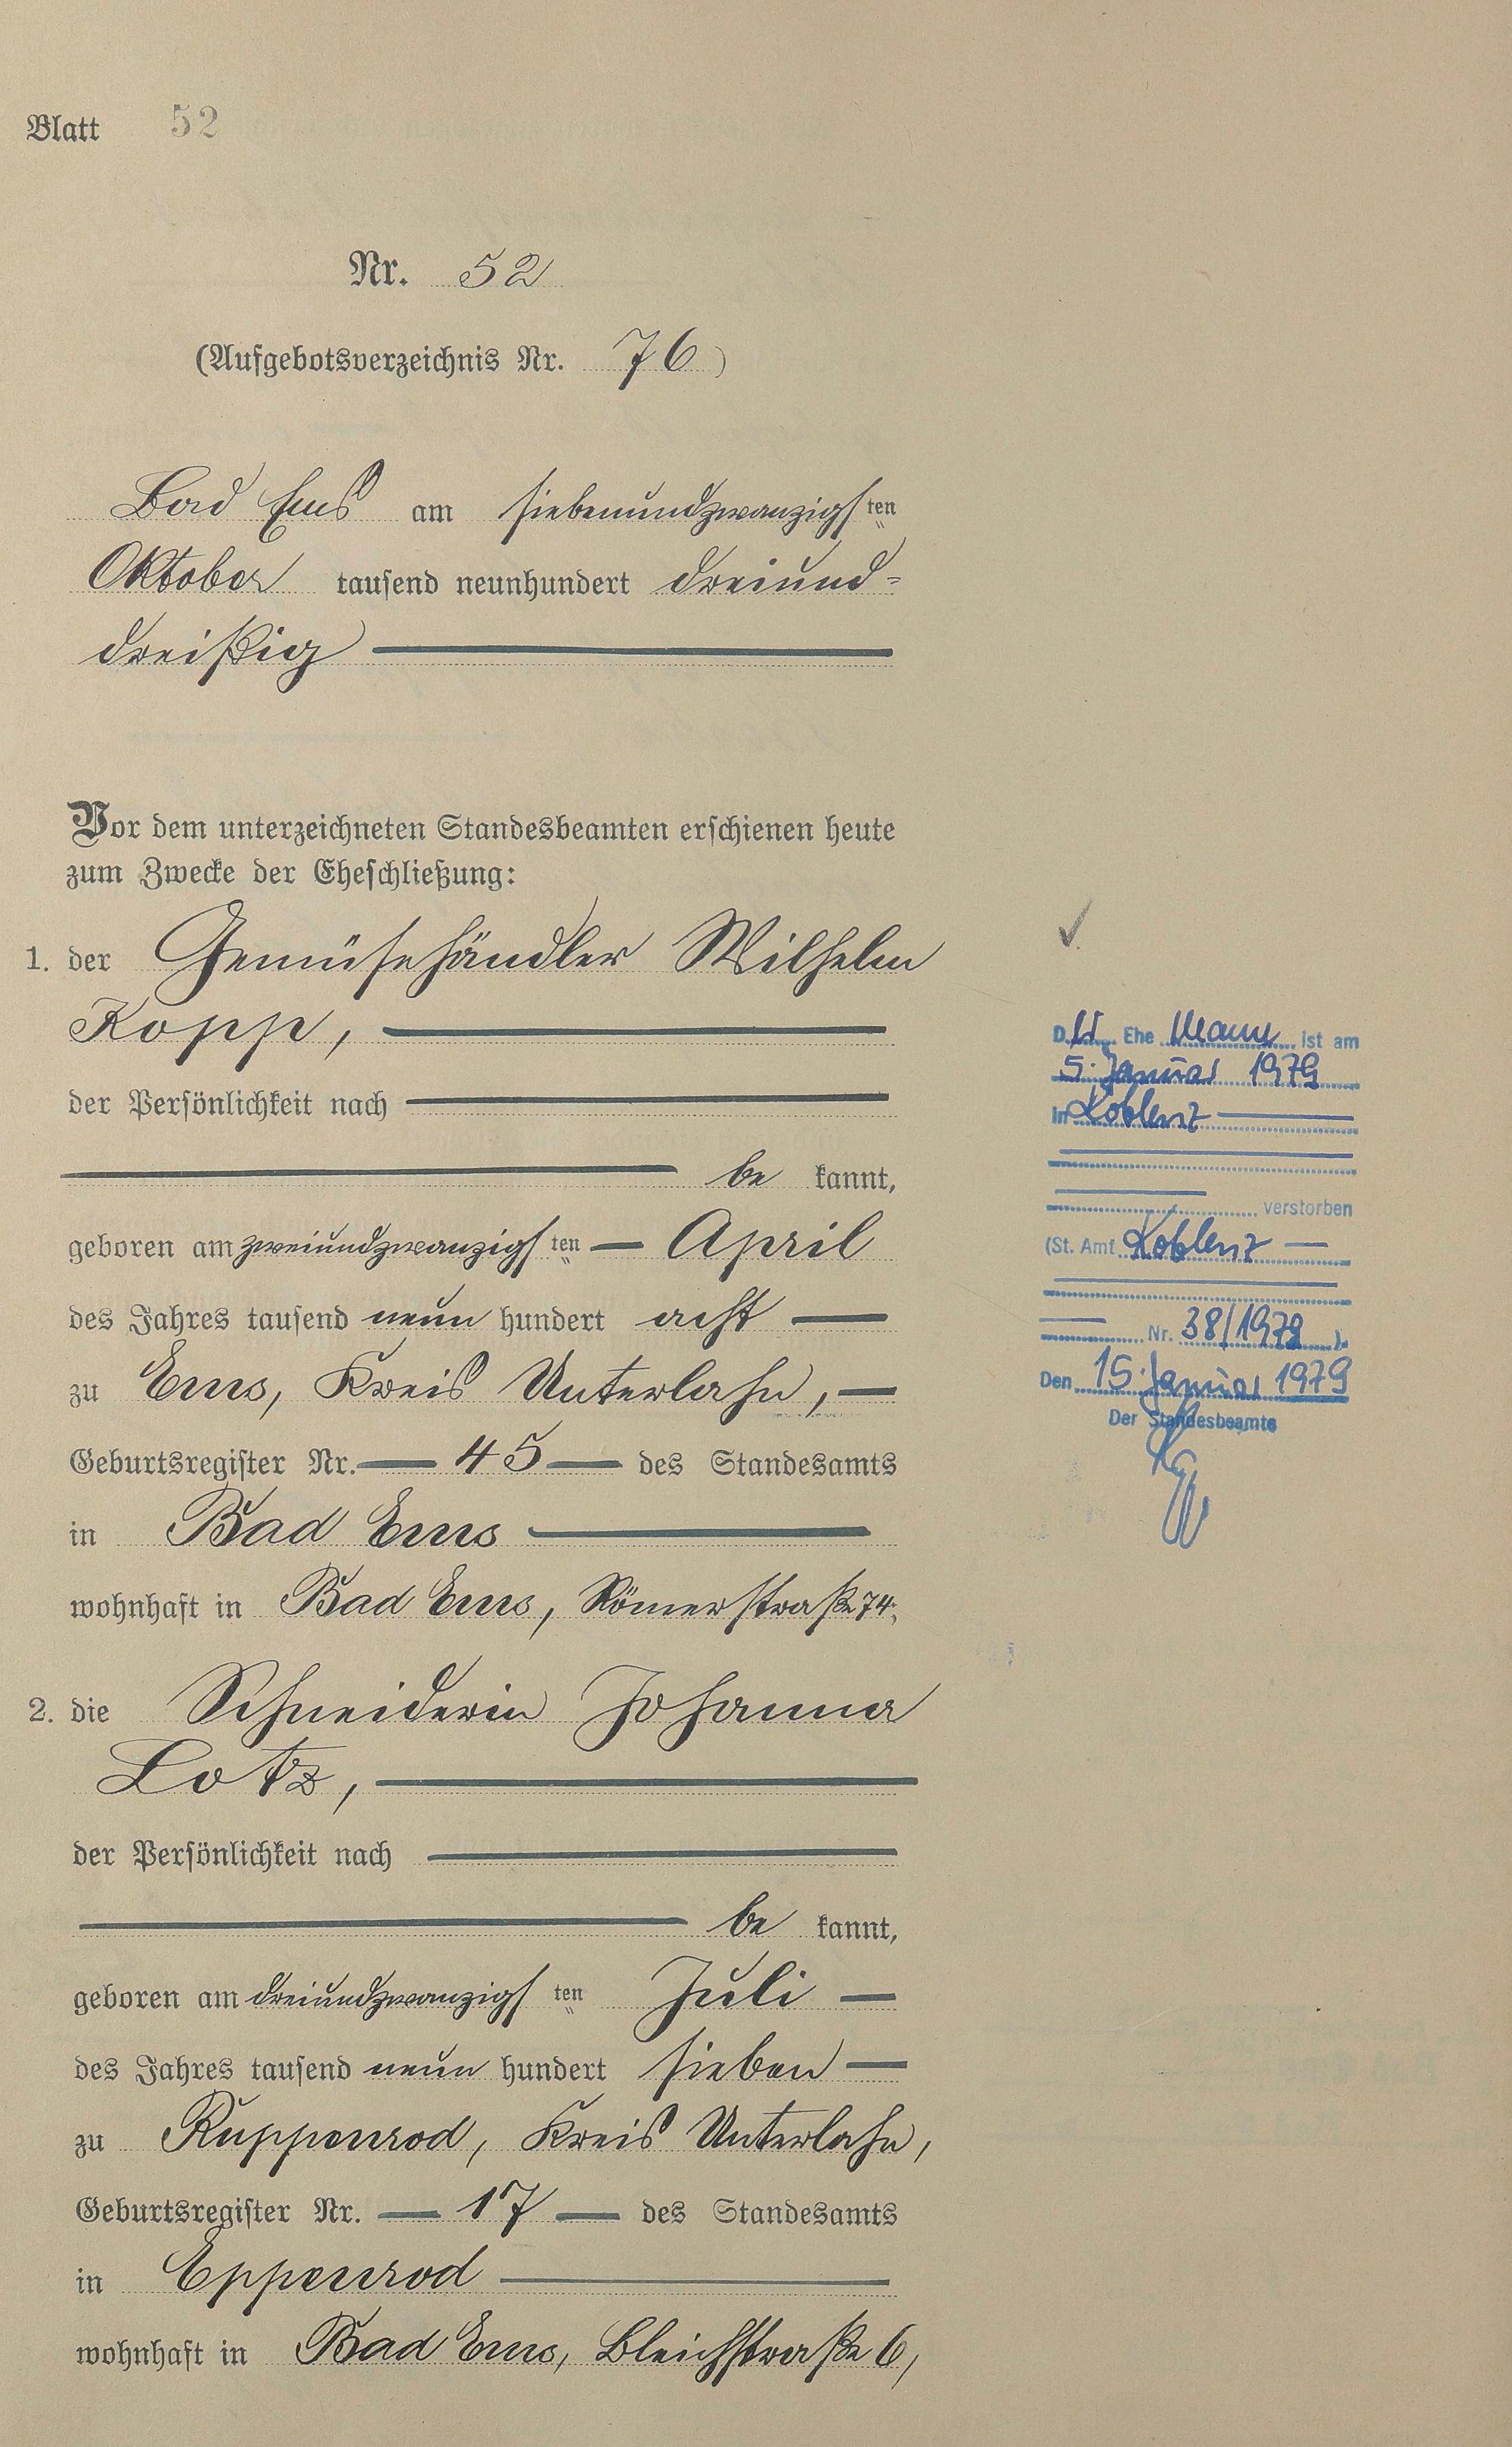 Blatt 52
Nr. 52
(Aufgebotsverzeichnis Nr. 76)
Bad Ems am siebenundzwanzigsten
Oktober tausend neunhundert dreiund-
dreißig
Vor dem unterzeichneten Standesbeamten erschienen heute
zum Zwecke der Eheschließung:
1. der Gemüsehändler Wilhelm
Kopp,
der Persönlichkeit nach
be kannt,
geboren am zweiundzwanzigsten April
des Jahres tausend neun hundert acht
zu Ems, Kreis Unterlahn,
Geburtsregister Nr. 45 des Standesamts
in Bad Ems
wohnhaft in Bad Ems, Römerstraße 74,
2. die Schneiderin Johanna
Lotz,
der Persönlichkeit nach
be kannt,
geboren am dreiundzwanzigsten Juli
des Jahres tausend neun hundert sieben
zu Ruppenrod, Kreis Unterlahn,
Geburtsregister Nr. 17 des Standesamts
in Eppenrod
wohnhaft in Bad Ems, Bleichstraße 6,
Der Ehe Mann ist am
5. Januar 1979
in Koblenz
verstorben
(St. Amt Koblenz
Nr. 38/1979).
Den 15. Januar 1979
Der Standesbeamte